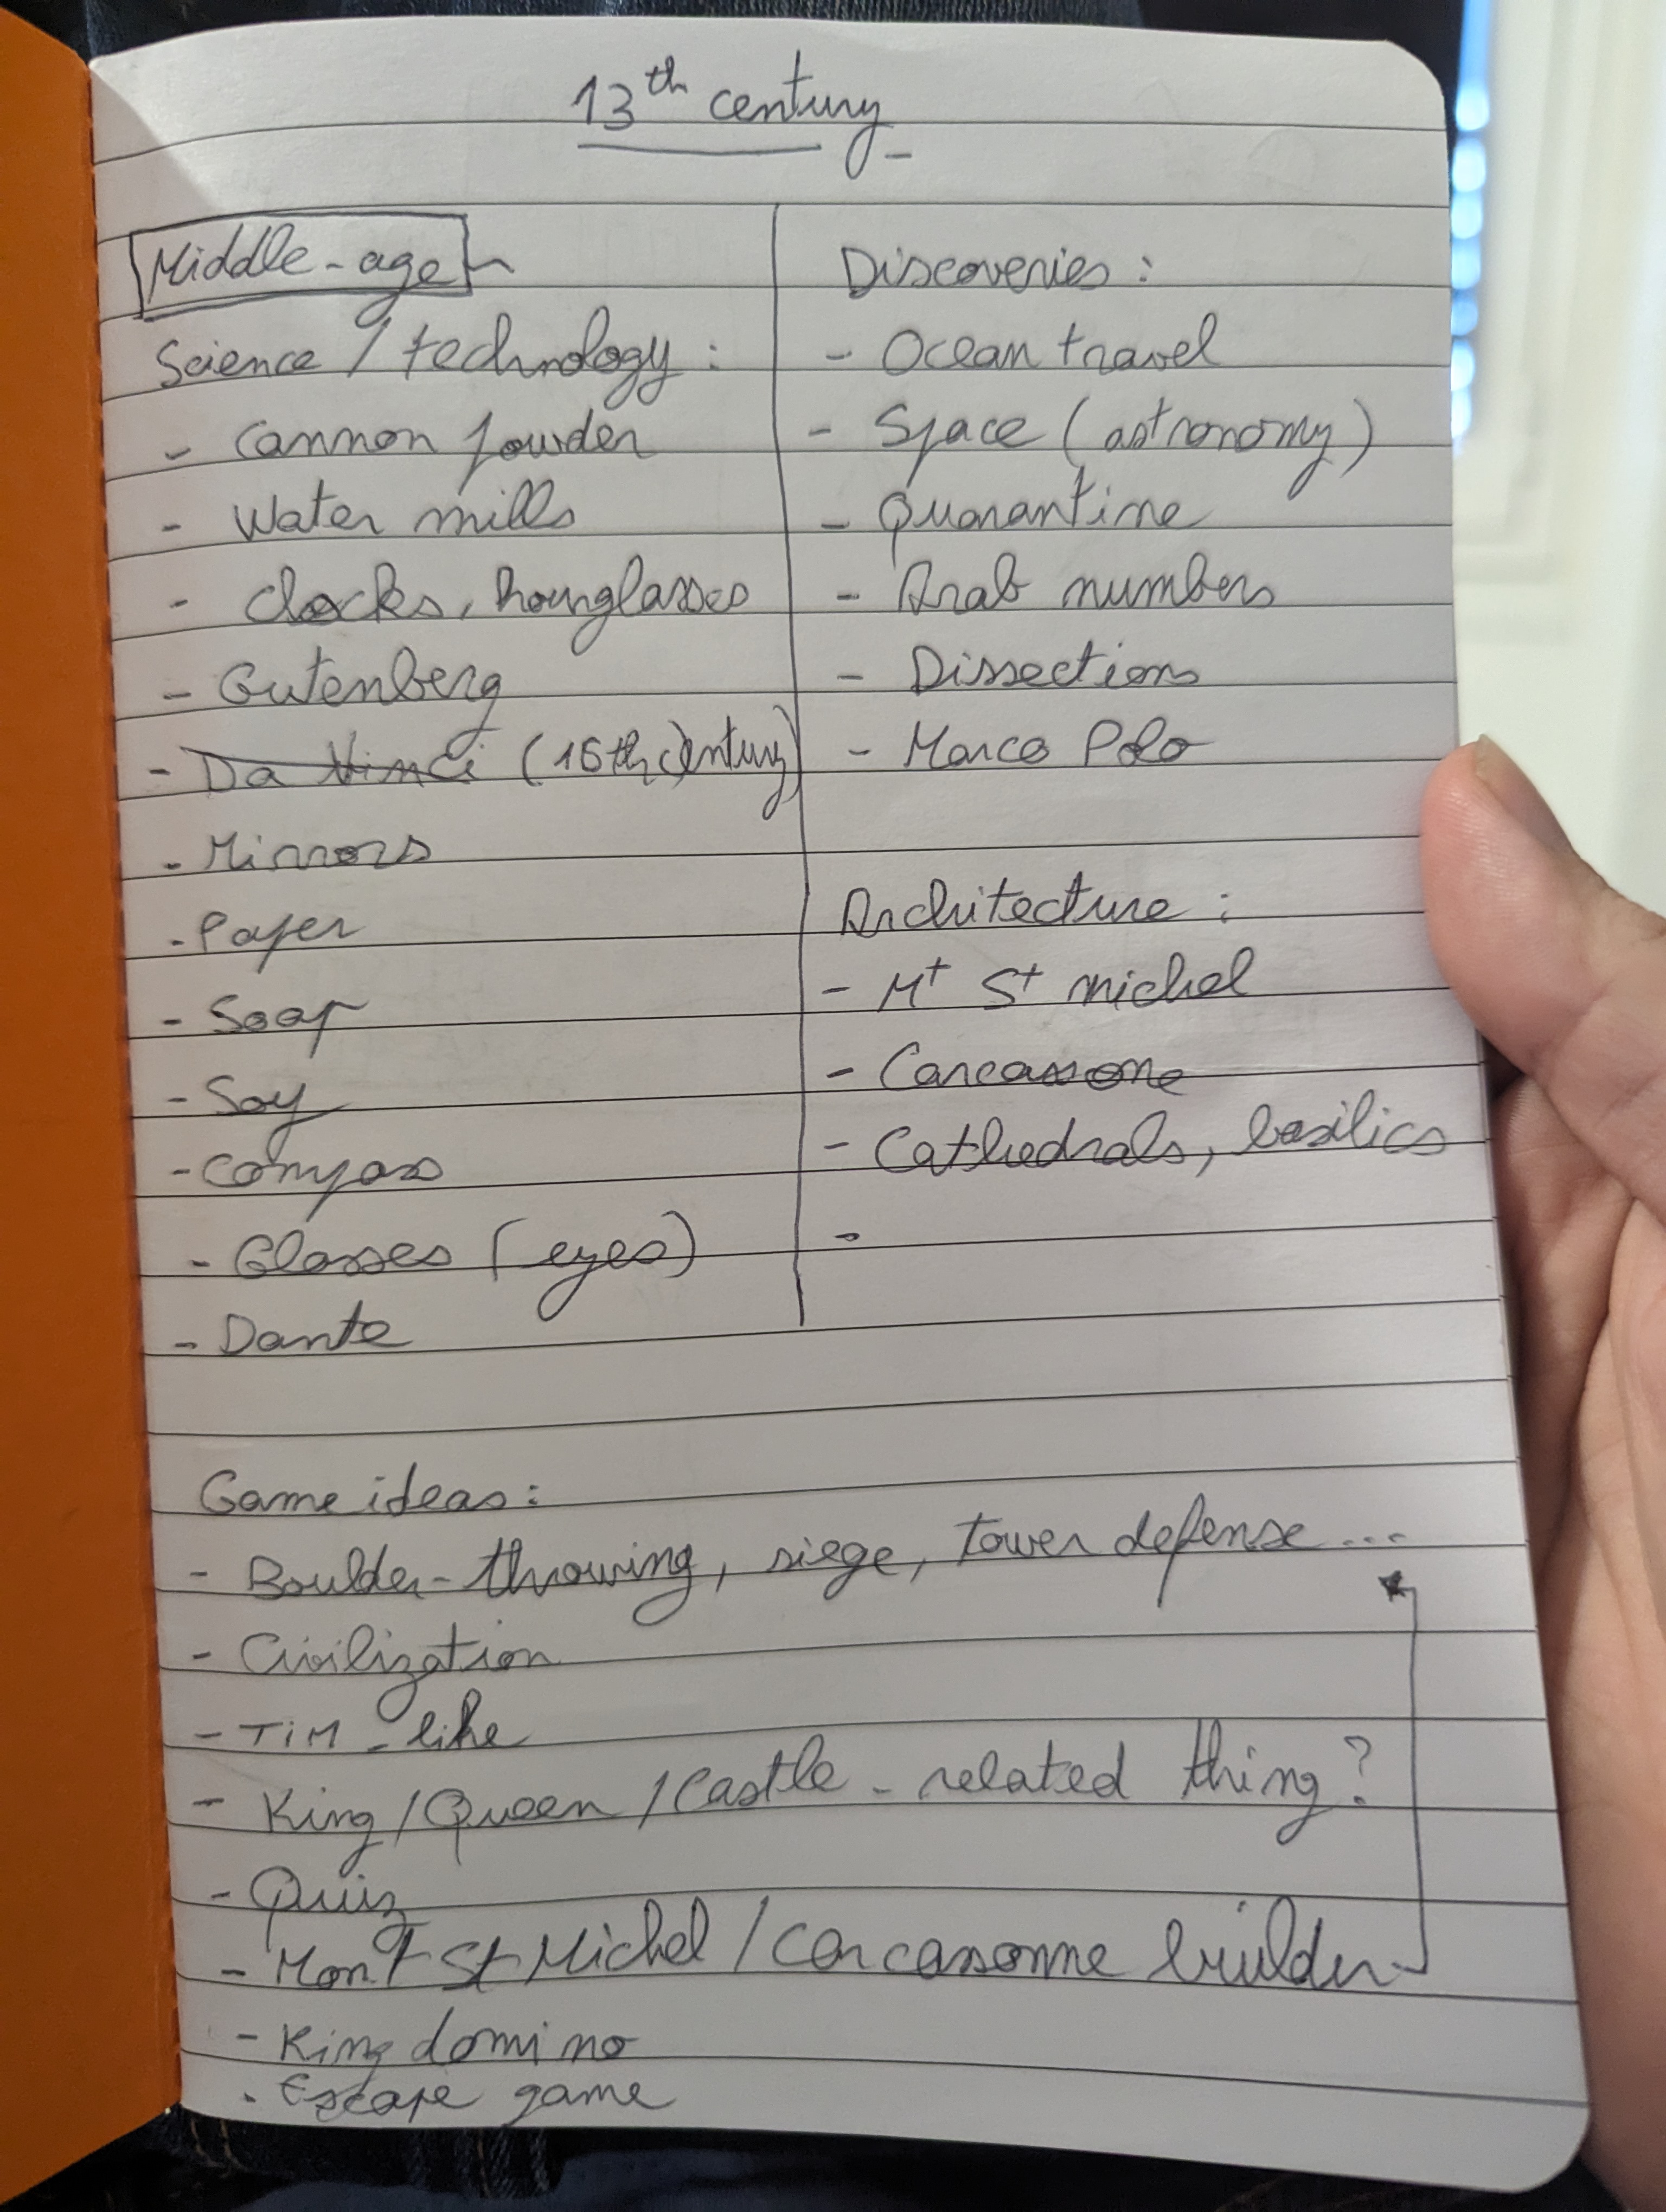 13th century
Middle-age
Science / technology :
- Cannon powder
- Water mills
- Clocks, hourglasses
- Gutenberg
- Da Vinci (16th century)
- Mirrors
- Paper
- Soap
- Soy
- Compass
- Glasses (eyes)
- Dante
Discoveries :
- Ocean travel
- Space (astronomy)
- Quarantine
- Arab numbers
- Dissections
- Marco Polo
Architecture :
- Mt St michel
- Carcassone
- Cathedrals, basilics
-
Game ideas :
- Boulder-throwing, siege, tower defense ...
- Civilization
- TiM-like
- King / Queen / Castle - related thing ?
- Quiz
- Mont St Michel / Carcasonne builder
- King domino
- Escape game